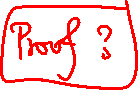 Proof ?